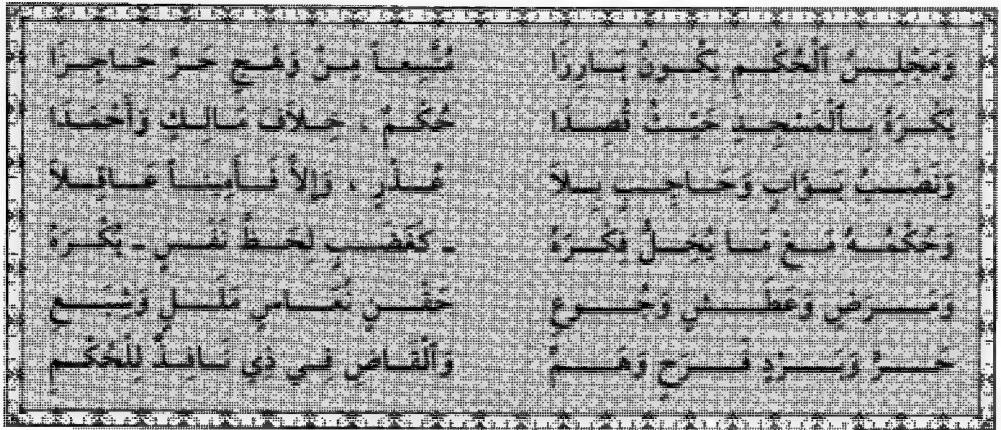 وَمَجْلِسُ ٱلْحُكْمِ يَكُونُ بَارِزَا مُتَّسِعاً مِنْ وَهْجِ حَرٍّ حَاجِزَا
يُكْرَهُ بِٱلْمَسْجِدِ حَيْثُ قُصِدَا حُكْمٌ ، خِلاَفَ مَالِكٍ وَأَحْمَدَا
وَنَصْبُ بَوَّابٍ وَحَاجِبٍ بِلاَ عُذْرٍ ، وَإِلاَّ فَأَمِيناً عَاقِلاَ
وَحُكْمُهُ مَعْ مَا يُخِلُّ فِكْرَهُ ـ كَغَضَبٍ لِحَظِّ نَفْسٍ ـ يُكْرَهُ
وَمَرَضٍ وَعَطَشٍ وَجُوعِ حَقْنٍ نُعَاسٍ مَلَلٍ وَشِبَعِ
حَرٍّ وَبَرْدٍ فَرَحٍ وَهَمِّ وَٱلْقَاضِ فِي ذِي نَافِذٌ لِلْحُكْمِ